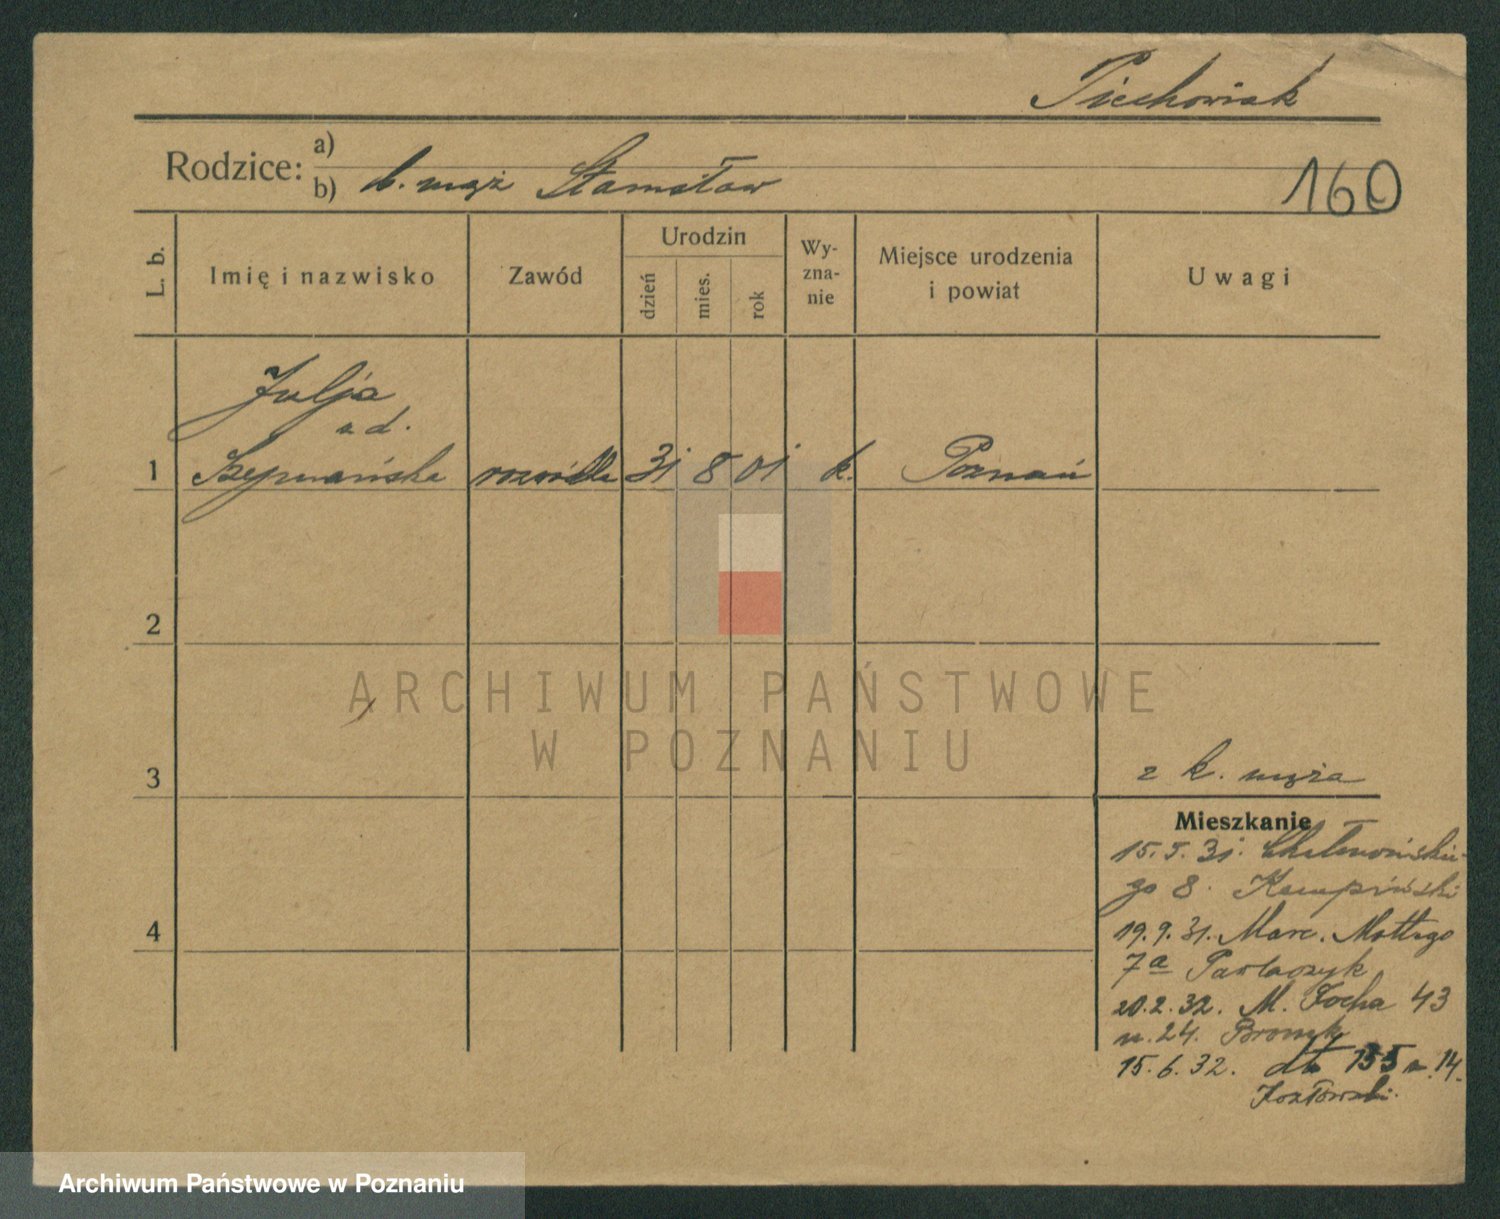 Piechowiak
Rodzice: a)
b) b. mąż Stanisław
160
L. b.
Imię i nazwisko
Zawód
Urodzin
dzień
mies.
rok
Wy-
zna-
nie
Miejsce urodzenia
i powiat
Uwagi
Julja
z d.
1 Szymańska rozwódka 31 8 01 k. Poznań
2
ARCHIWUM PAŃSTWOWE
W POZNANIU
3
z k. męża
Mieszkanie
15.5.31. Chełmońskie-
go 8. Kempiński
4
19.9.31. Marc. Mottego
7a Pawlaczyk
20.2.32. M. Focha 43
m. 24.
15.6.32. dto 155 m. 14.
Kozłowski.
Archiwum Państwowe w Poznaniu